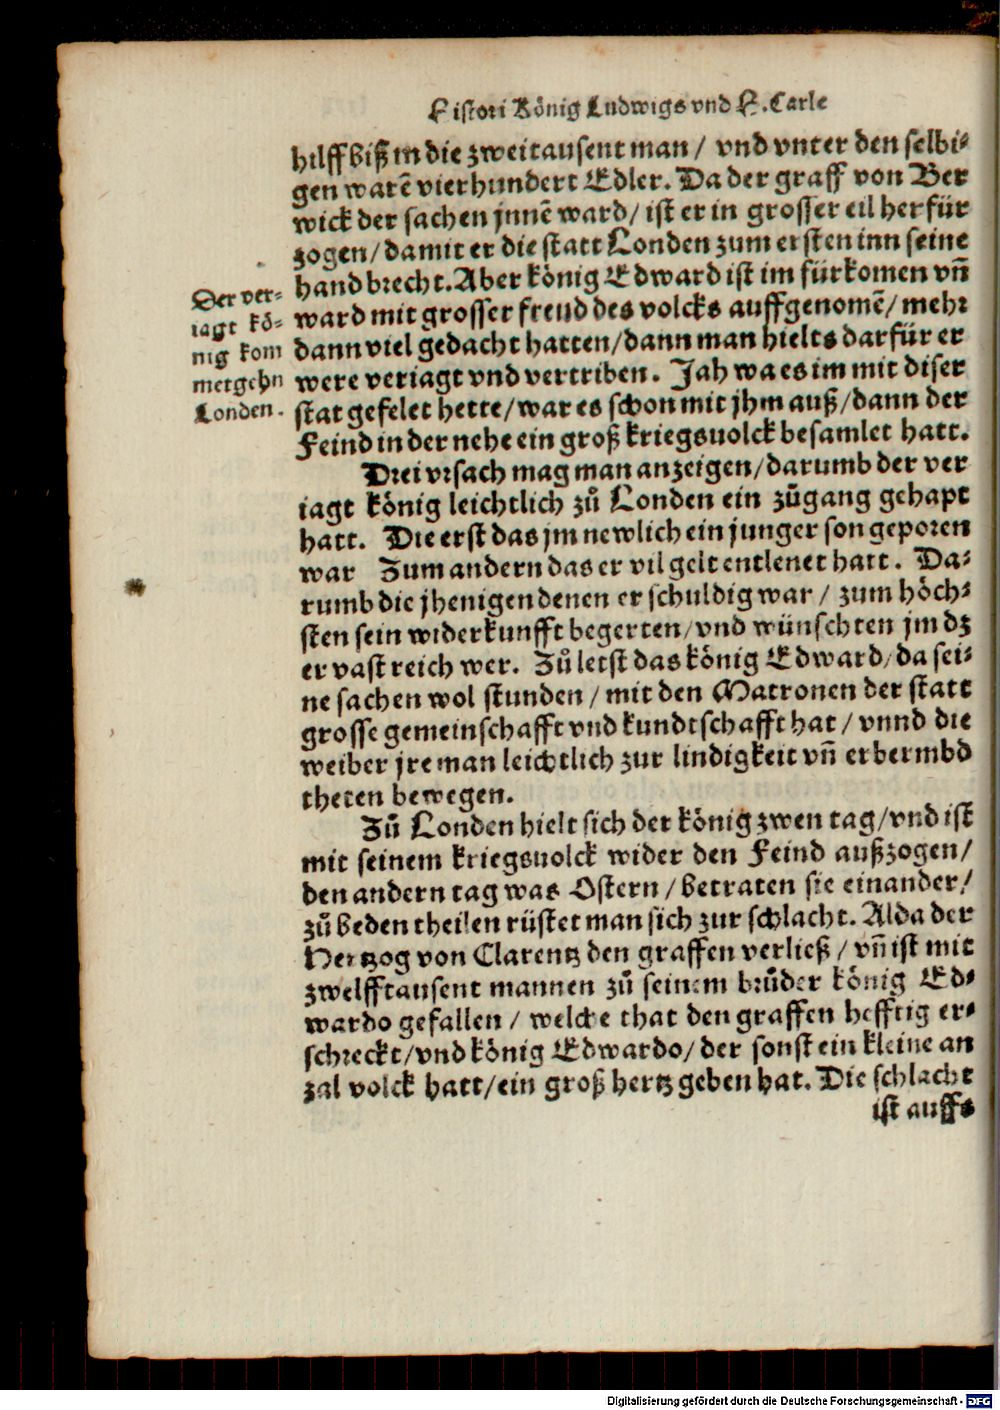 Histori König Ludwigs vnd H. Carle
hilff biß in die zweitausent man / vnd vnter den selbi⸗
gen warẽ vierhundert Edler. Da der graff von Ber
wick der sachen jnnẽ ward / ist er in grosser eil herfür
zogen / damit er die statt Londen zum ersten inn seine
hand brecht. Aber könig Edward ist im fürkomen vñ
ward mit grosser freud des volcks auffgenomẽ / mehr
dann viel gedacht hatten / dann man hielts darfür er
were veriagt vnd vertriben. Jah wa es im mit diser
stat gefelet hette / war es schon mit jhm auß / dann der
Feind in der nehe ein groß kriegsuolck besamlet hatt.
Der ver⸗
iagt kö⸗
nig kom
met gehn
Londen.
Drei vrsach mag man anzeigen / darumb der ver
iagt könig leichtlich zů Londen ein zůgang gehapt
hatt. Die erst das jm newlich ein junger son geporen
war Zum andern das er vil gelt entlenet hatt. Da⸗
rumb die jhenigen denen er schuldig war / zum höch⸗
sten sein widerkunfft begerten / vnd wünschten jm dz
er vast reich wer. Zů letst das könig Edward / da sei⸗
ne sachen wol stunden / mit den Matronen der statt
grosse gemeinschafft vnd kundtschafft hat / vnnd die
weiber jre man leichtlich zur lindigkeit vñ erbermbd
theten bewegen.
Zů Londen hielt sich der könig zwen tag / vnd ist
mit seinem kriegsuolck wider den Feind außzogen /
den andern tag was Ostern / betraten sie einander /
zů beden theilen rüstet man sich zur schlacht. Alda der
Hertzog von Clarentz den graffen verließ / vñ ist mit
zwelfftausent mannen zů seinem brůder könig Ed⸗
wardo gefallen / welche that den graffen hefftig er⸗
schreckt / vnd könig Edwardo / der sonst ein kleine an
zal volck hatt / ein groß hertz geben hat. Die schlacht
ist auffs
Digitalisierung gefördert durch die Deutsche Forschungsgemeinschaft - DFG